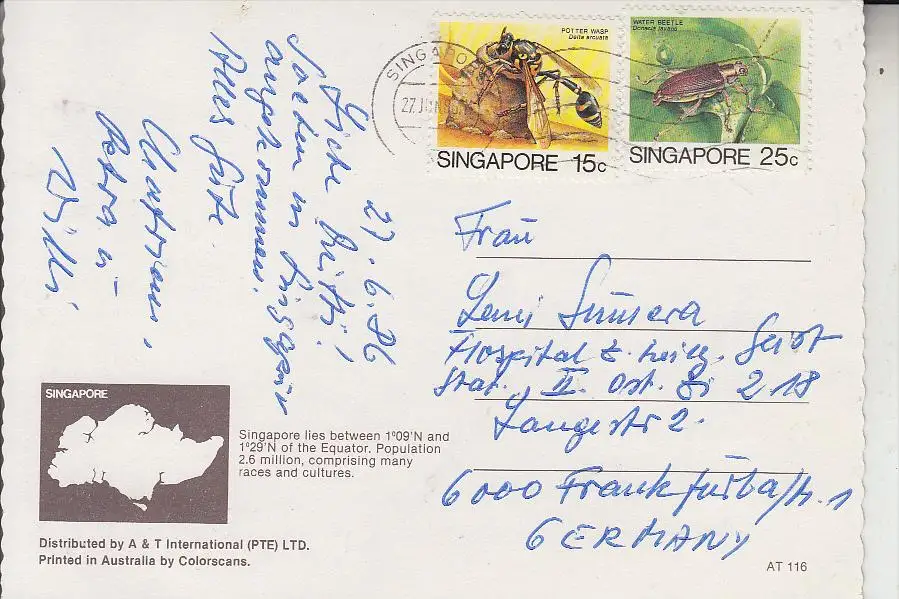 SINGAPORE
27 JUN 86
POTTER WASP
Delta arcuata
SINGAPORE 15c
WATER BEETLE
Donacia javana
SINGAPORE 25c
27.6.86
Liebe
Soeben in Singapur
angekommen.
Alles Gute
Petra u
Willi
Frau
Leni
Hospital z. heilg. Geist
Stat., II. Ost. Zi 218
Langestr 2.
6000 Frankfurt a/M. 1
GERMANY
SINGAPORE
Singapore lies between 1°09'N and
1°29'N of the Equator. Population
2.6 million, comprising many
races and cultures.
Distributed by A & T International (PTE) LTD.
Printed in Australia by Colorscans.
AT 116